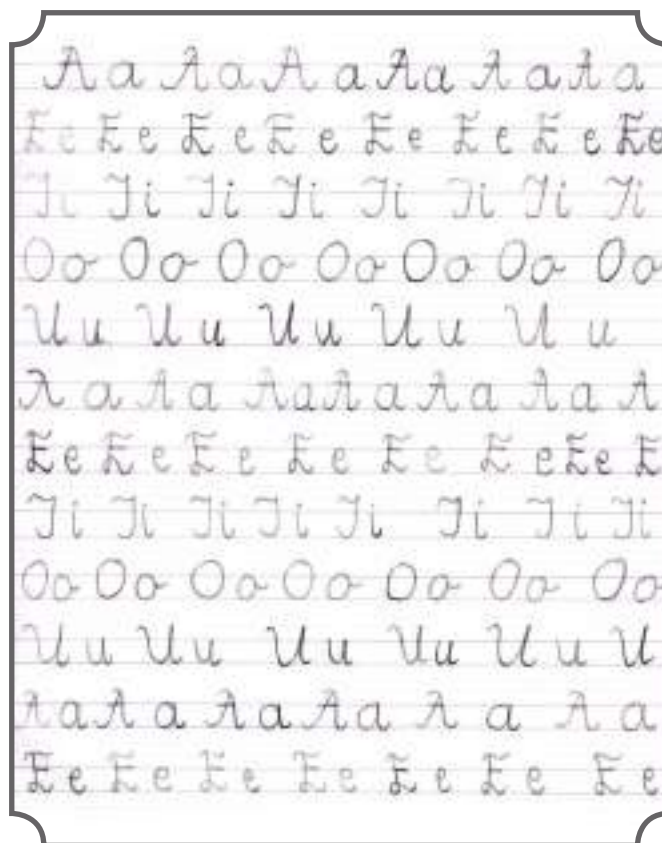 A a A a A a A a A a A a
E e E e E e E e E e E e E e E e
I i I i I i I i I i I i I i I i
O o O o O o O o O o O o O o
U u U u U u U u U u
A a A a A a A a A a A a A
E e E e E e E e E e E e E e E
I i I i I i I i I i I i I i I i
O o O o O o O o O o O o O o
U u U u U u U u U u U
A a A a A a A a A a A a
E e E e E e E e E e E e E e